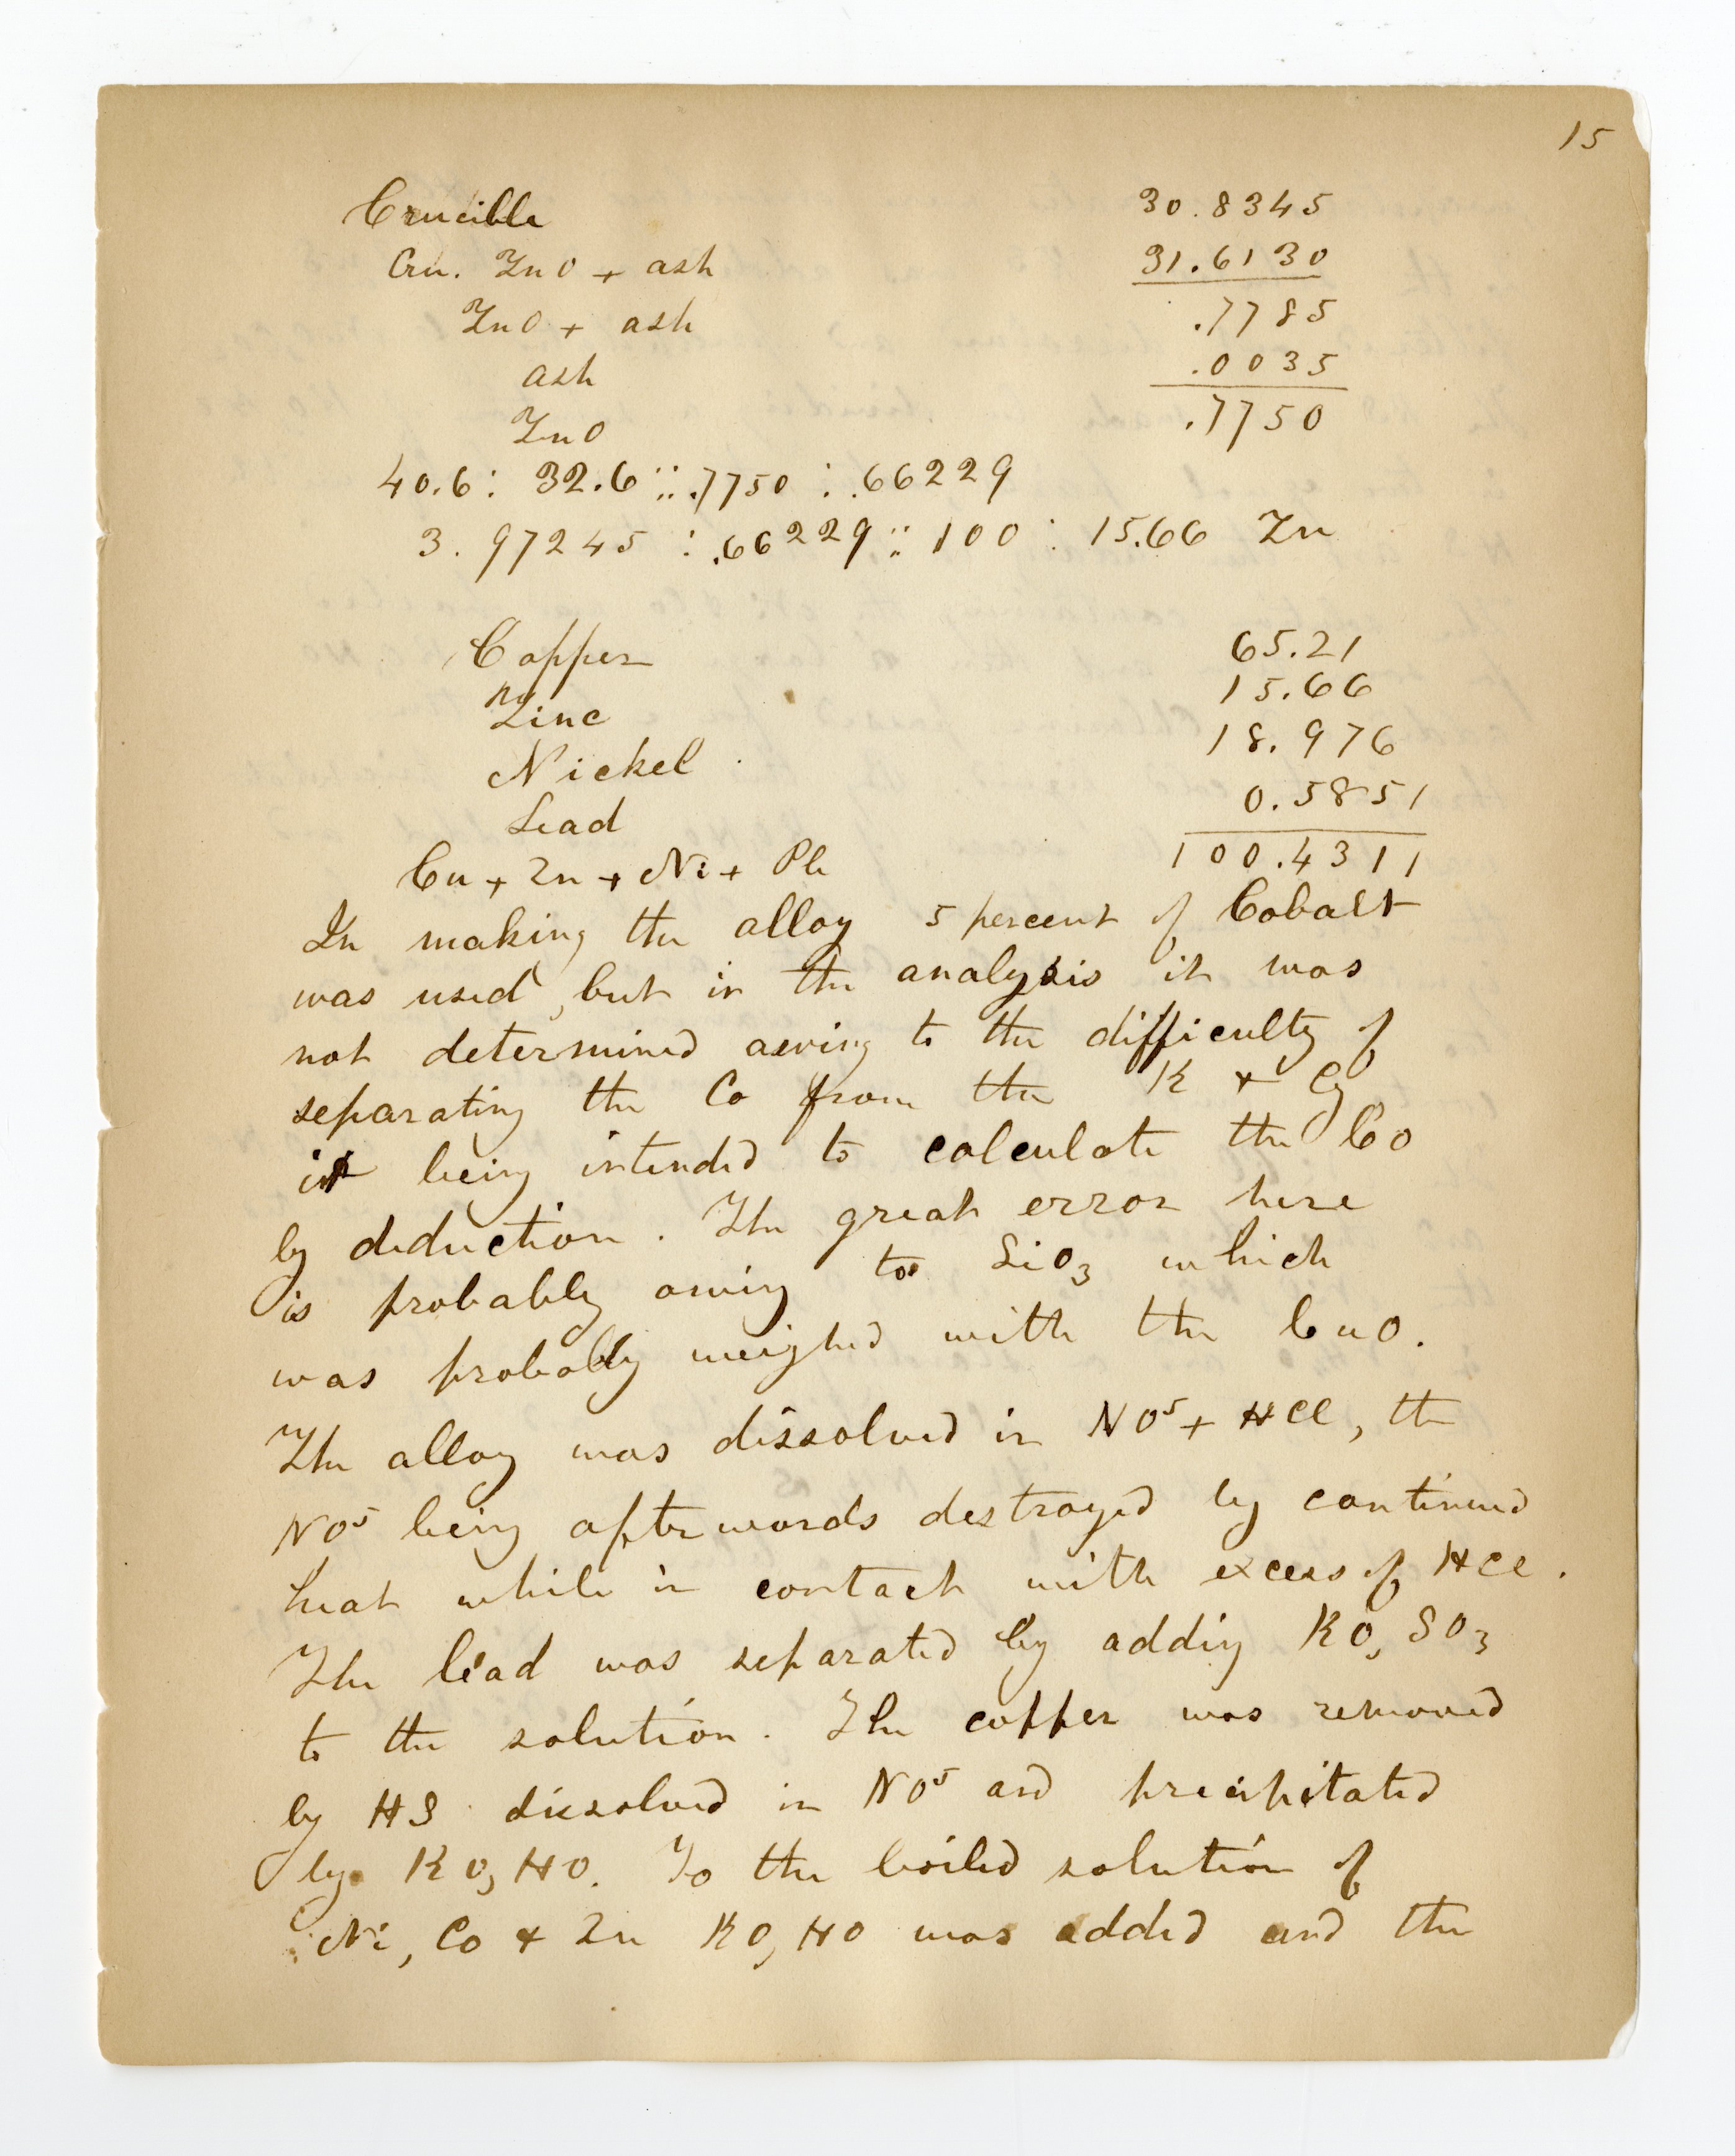 15
Crucible 30.8345
Cru. ZnO + ash 31.6130
ZnO + ash .7785
ash .0035
ZnO .7750
40.6 : 32.6 :: .7750 : .66229
3.97245 : .66229 :: 100 : 15.66 Zn
Copper 65.21
Zinc 15.66
Nickel 18.976
Lead 0.5851
Cu + Zn + Ni + Pb 100.4311
In making the alloy 5 percent of Cobalt
was used, but in the analysis it was
not determined owing to the difficulty of
separating the Co from the K + Cy
it being intended to calculate the Co
by deduction. The great error here
is probably owing to SiO3 which
was probably weighed with the CuO.
The alloy was dissolved in NO5 + HCl, the
NO5 being afterwords destroyed by continued
heat while in contact with excess of HCl.
The lead was separated by adding KO, SO3
to the solution. The copper was removed
by HS dissolved in NO5 and precipitated
by KO, HO. To the boiled solution of
Ni, Co + Zn KO, HO was added and the